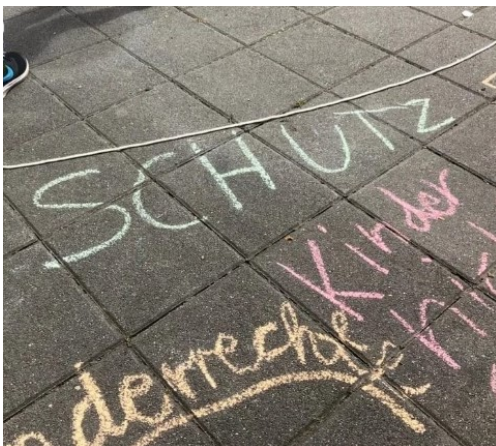 SCHUTZ
Kinder
derrechte